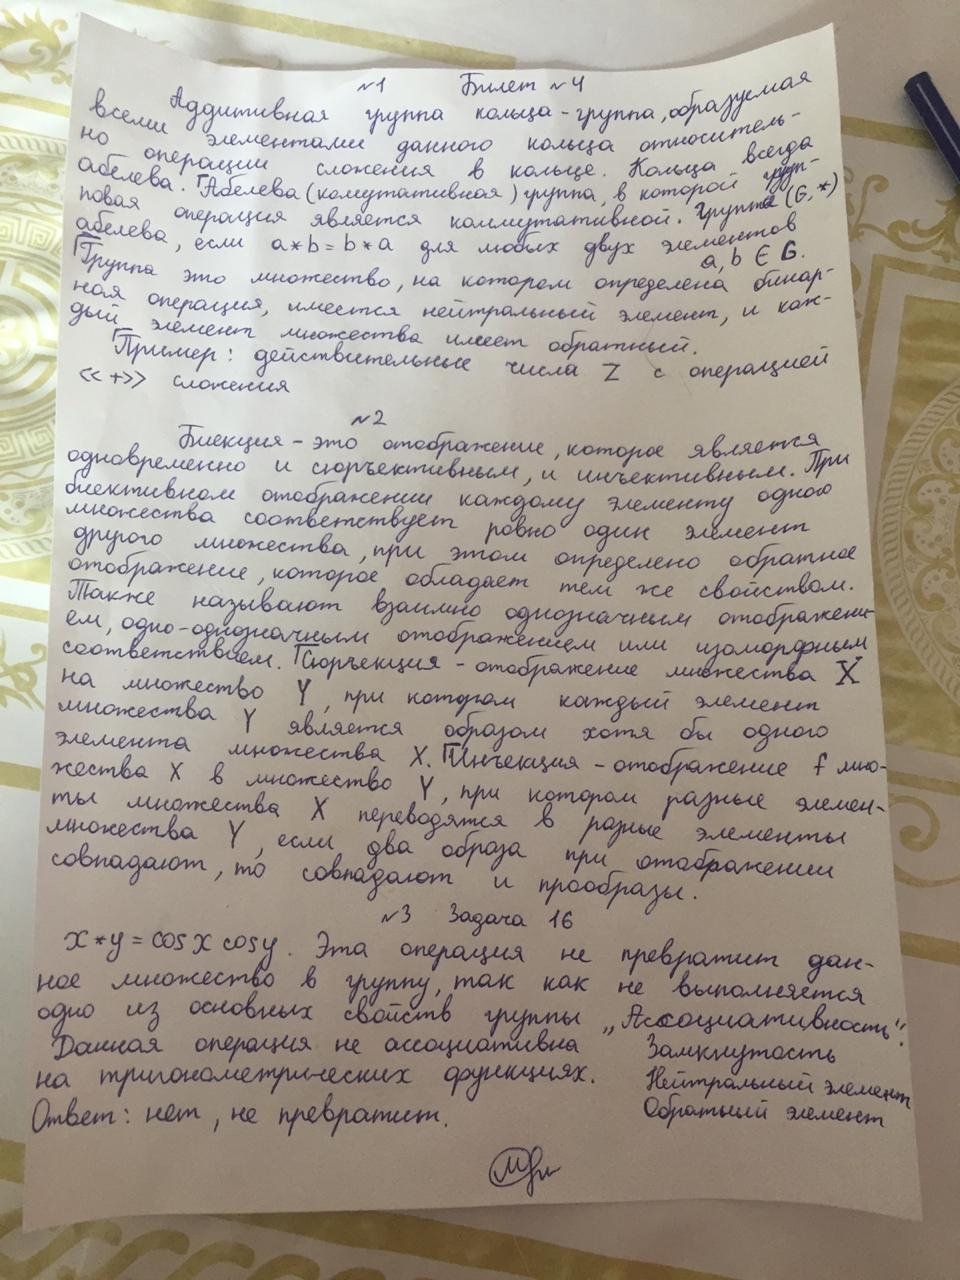 №1 Билет №4
Аддитивная группа кольца - группа, образуемая
всеми элементами данного кольца относитель-
но операции сложения в кольце. Кольца всегда
абелева. Абелева (комутативная) группа, в которой груп-
повая операция является коммутативной. Группа (G,*)
абелева, если a*b=b*a для любых двух элементов
a,b ∈ G.
Группа это множество, на котором определена бинар-
ная операция, имеется нейтральный элемент, и каж-
дый элемент множества имеет обратный.
Пример: действительные числа Z с операцией
<<+>> сложения
№2
Биекция - это отображение, которое является
одновременно и сюръективным, и инъективным. При
биективном отображении каждому элементу одного
множества соответствует ровно один элемент
другого множества, при этом определено обратное
отображение, которое обладает тем же свойством.
Также называют взаимно однозначным отображени-
ем, одно-однозначным отображением или изоморфным
соответствием. Сюръекция - отображение множества X
на множество Y, при котором каждый элемент
множества Y является образом хотя бы одного
элемента множества X. Инъекция - отображение f мно-
жества X в множество Y, при котором разные элемен-
ты множества X переводятся в разные элементы
множества Y, если два образа при отображении
совпадают, то совпадают и прообразы.
№3 Задача 16
x*y = cosx cosy. Эта операция не превратит дан-
ное множество в группу, так как не выполняется
одно из основных свойств группы „Ассоциативность".
Данная операция не ассоциативна Замкнутость
на тригонометрических функциях. Нейтральный элемент
Ответ: нет, не превратит. Обратный элемент